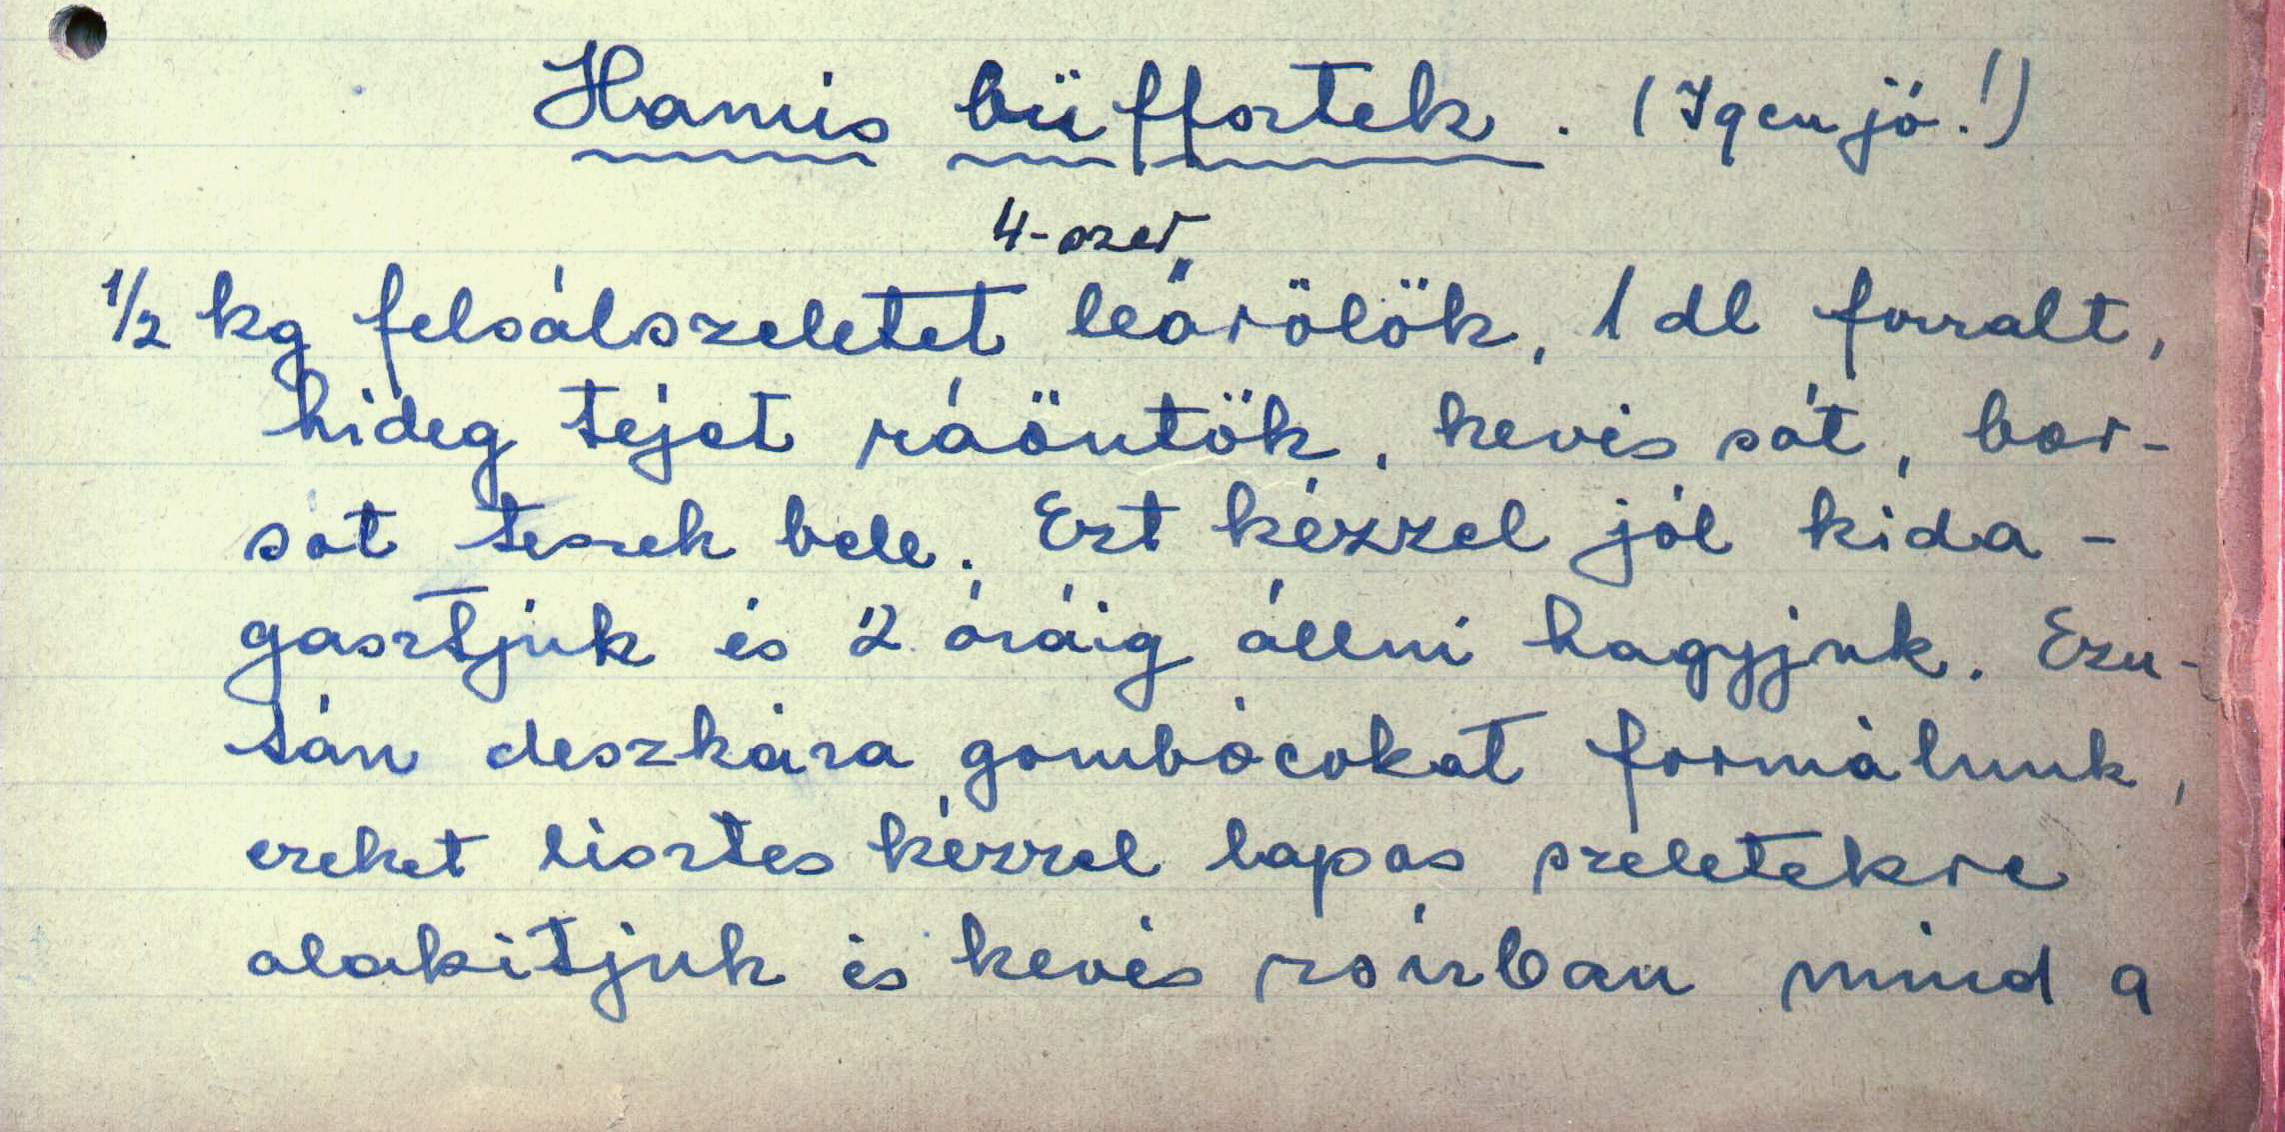 Hamis büffsztek. (Igen jó!)
4-szer
1/2 kg felsálszeletet leőrölök, 1 dl forralt,
hideg tejet ráöntök, kevés sót, bor-
sot teszek bele. Ezt kézzel jól kida-
gasztjuk és 2 óráig állni hagyjuk. Ezu-
tán deszkára gombócokat formálunk,
ezeket lisztes kézzel lapos szeletekre
alakitjuk és kevés zsirban mind a